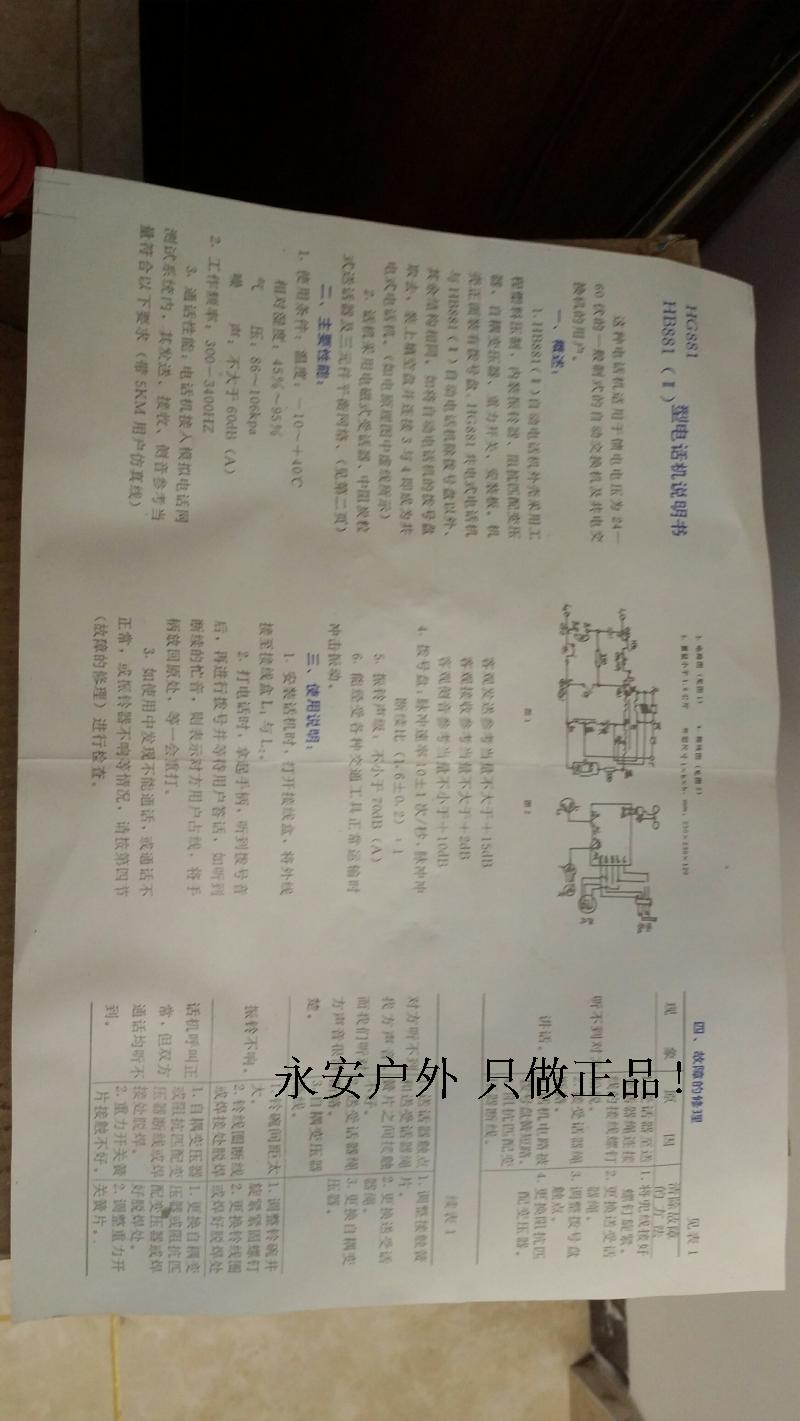 HG881
HB881（Ⅰ）
型电话机说明书
这种电话机适用于馈电电压为 24—
60 伏的一般制式的自动交换机及共电交
换机的用户。
一、概述：
1. HB881（Ⅰ）自动电话机外壳采用工
程塑料压制，内装振铃器、阻抗匹配变压
器、自耦变压器、重力开关、安装板。机
壳正面装有拨号盘。HG881 共电式电话机
与 HB881（Ⅰ）自动电话机除拨号盘以外，
其余结构相同。如将自动电话机的拨号盘
取去，装上填空盘并连接 3 与 4 即成为共
电式电话机。（如电原理图中虚线所示）
2. 话机采用电磁式受话器、中阻炭粒
式送话器及三元件平衡网络。（见第二页）
二、主要性能：
1. 使用条件：温度：－10～＋40℃
相对湿度：45%～95%
气 压：86～106kpa
噪 声：不大于 60dB（A）
2. 工作频率：300—3400HZ
3. 通话性能：电话机接入模拟电话网
测试系统内，其发送、接收、侧音参考当
量符合以下要求（带 5KM 用户仿真线）
图 1
图 2
客观发送参考当量不大于＋15dB
客观接收参考当量不大于＋2dB
客观侧音参考当量不小于＋10dB
4. 拨号盘：脉冲速率 10±1 次/秒，脉冲冲
断续比（1.6±0.2）：1
5. 振铃声级：不小于 70dB（A）
6. 能经受各种交通工具正常运输时
冲击振动。
三、使用说明：
1. 安装话机时，打开接线盒，将外线
接至接线盒 L₁ 与 L₂。
2. 打电话时，拿起手柄，听到拨号音
后，再进行拨号并等待用户答话，如听到
断续的忙音，则表示对方用户占线，将手
柄放回原处，等一会重打。
3. 如使用中发现不能通话，或通话不
正常，或振铃器不响等情况，请按第四节
（故障的修理）进行检查。
四、故障的修理
见表 1
现 象
原 因
清除故障
的 方 法
听不到对
讲话。
1. 将兜线接好
螺钉旋紧。
2. 更换送受话
器绳。
3. 调整拨号盘
触点。
4. 更换阻抗匹
配变压器。
续表 1
对方听不到
我方声音
而我们听对
方声音很
楚。
1. 调整接触簧
片。
2. 更换送受话
器绳。
3. 更换自耦变
压器。
振铃不响。
1. 铃碗间距太
大。
2. 铃线圈断线
或焊接处脱焊
1. 调整铃碗并
旋紧紧固螺钉
2. 更换铃线圈
或焊好脱焊处
话机呼叫正
常，但双方
通话均听不
到。
1. 自耦变压器
或阻抗匹配变
压器断线或焊
接处脱焊。
2. 重力开关簧
片接触不好。
1. 更换自耦变
压器或阻抗匹
配变压器或焊
好脱焊处。
2. 调整重力开
关簧片。
永安户外 只做正品！